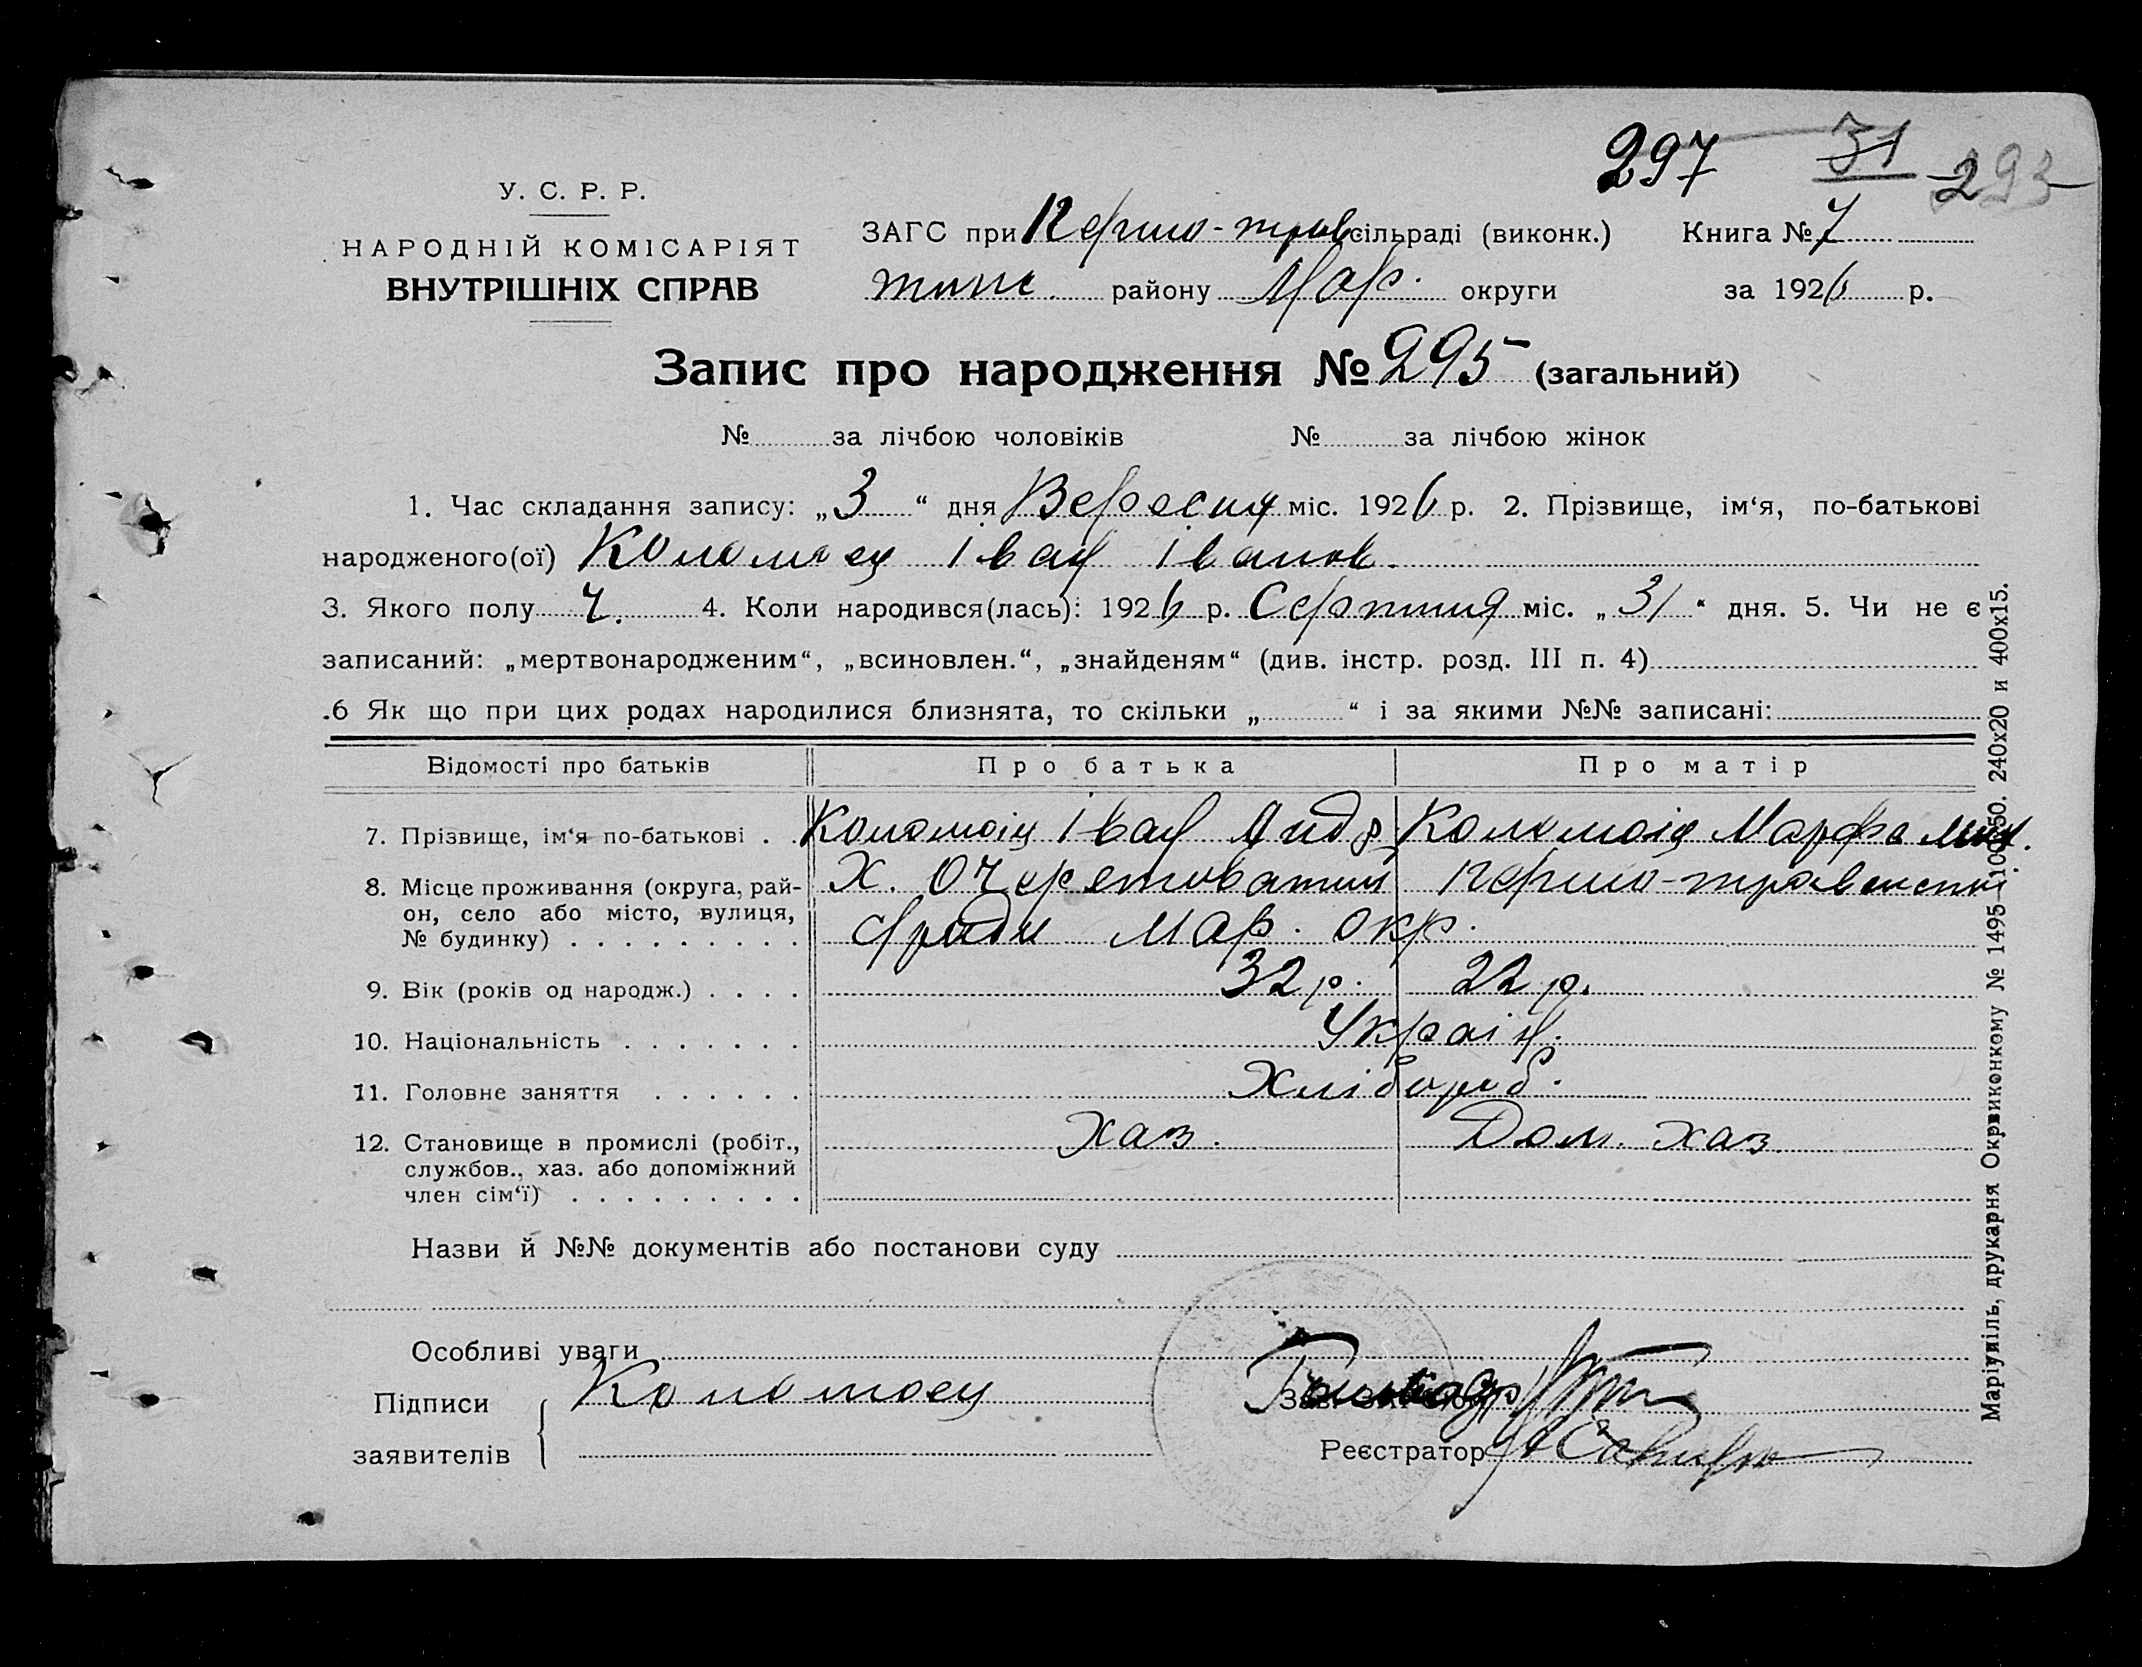 297 31 293
У. С. Р. Р.
НАРОДНІЙ КОМІСАРІЯТ
ВНУТРІШНІХ СПРАВ
ЗАГС при Першо-трав сільраді (виконк.) Книга № 7
району Мар. округи за 1926 р.
Запис про народження № 295 (загальний)
№ за лічбою чоловіків № за лічбою жінок
1. Час складання запису: „3“ дня Вересня міс. 1926 р. 2. Прізвище, ім‘я, по-батькові
народженого(ої) Коломоец Іван Іванов.
3. Якого полу ч. 4. Коли народився(лась): 1926 р. Серпния міс. „31“ дня. 5. Чи не є
записаний: „мертвонародженим“, „всиновлен.“, „знайденям“ (див. інстр. розд. III п. 4)
.6 Як що при цих родах народилися близнята, то скільки „ “ і за якими №№ записані:
Відомості про батьків Про батька Про матір
7. Прізвище, ім‘я по-батькові . . Коломоіц Іван Андр Коломоіц Марфа
8. Місце проживання (округа, рай- Х. Очеретоватий Першо-травенської
он, село або місто, вулиця, сради Мар. окр.
№ будинку) . . . . . . . . .
9. Вік (років од народж.) . . . . 32 р. 22 р.
10. Національність . . . . . . . Украін.
11. Головне заняття . . . . . . Хлібороб.
12. Становище в промислі (робіт., Хаз. Дом. хаз
службов., хаз. або допоміжний
член сім‘ї) . . . . . . . . .
Назви й №№ документів або постанови суду
Особливі уваги
Підписи Коломоец
заявителів
Реєстратор
Маріупіль, друкарня Окрвиконкому № 1495—100×50. 240х20 и 400х15.